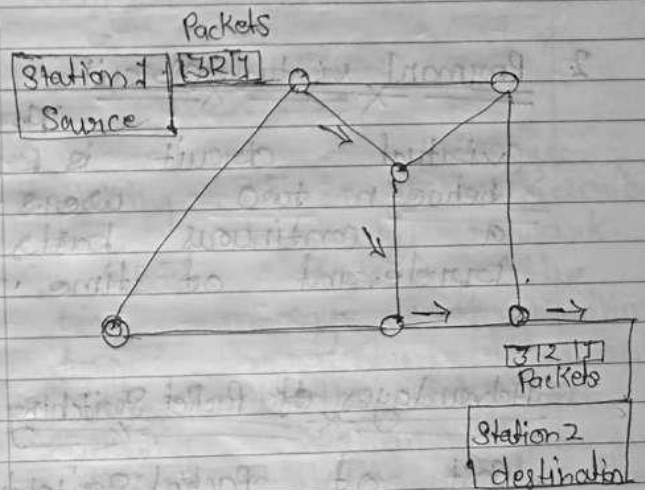 Packets
Station 1
3 2 1
Source
3 2 1
Packets
Station 2
destination